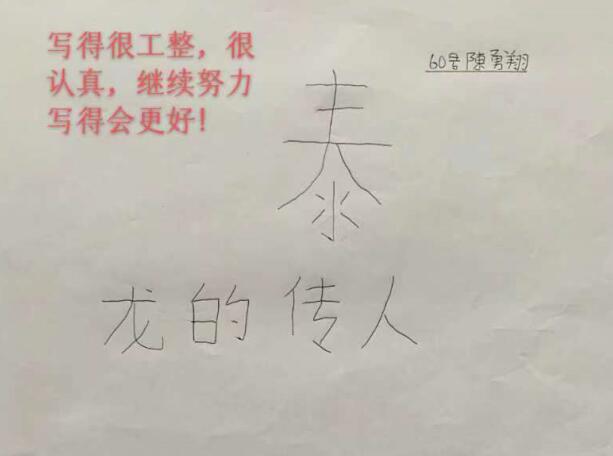 写得很工整，很
认真，继续努力
写得会更好！
60号陳勇翔
泰
龙的传人